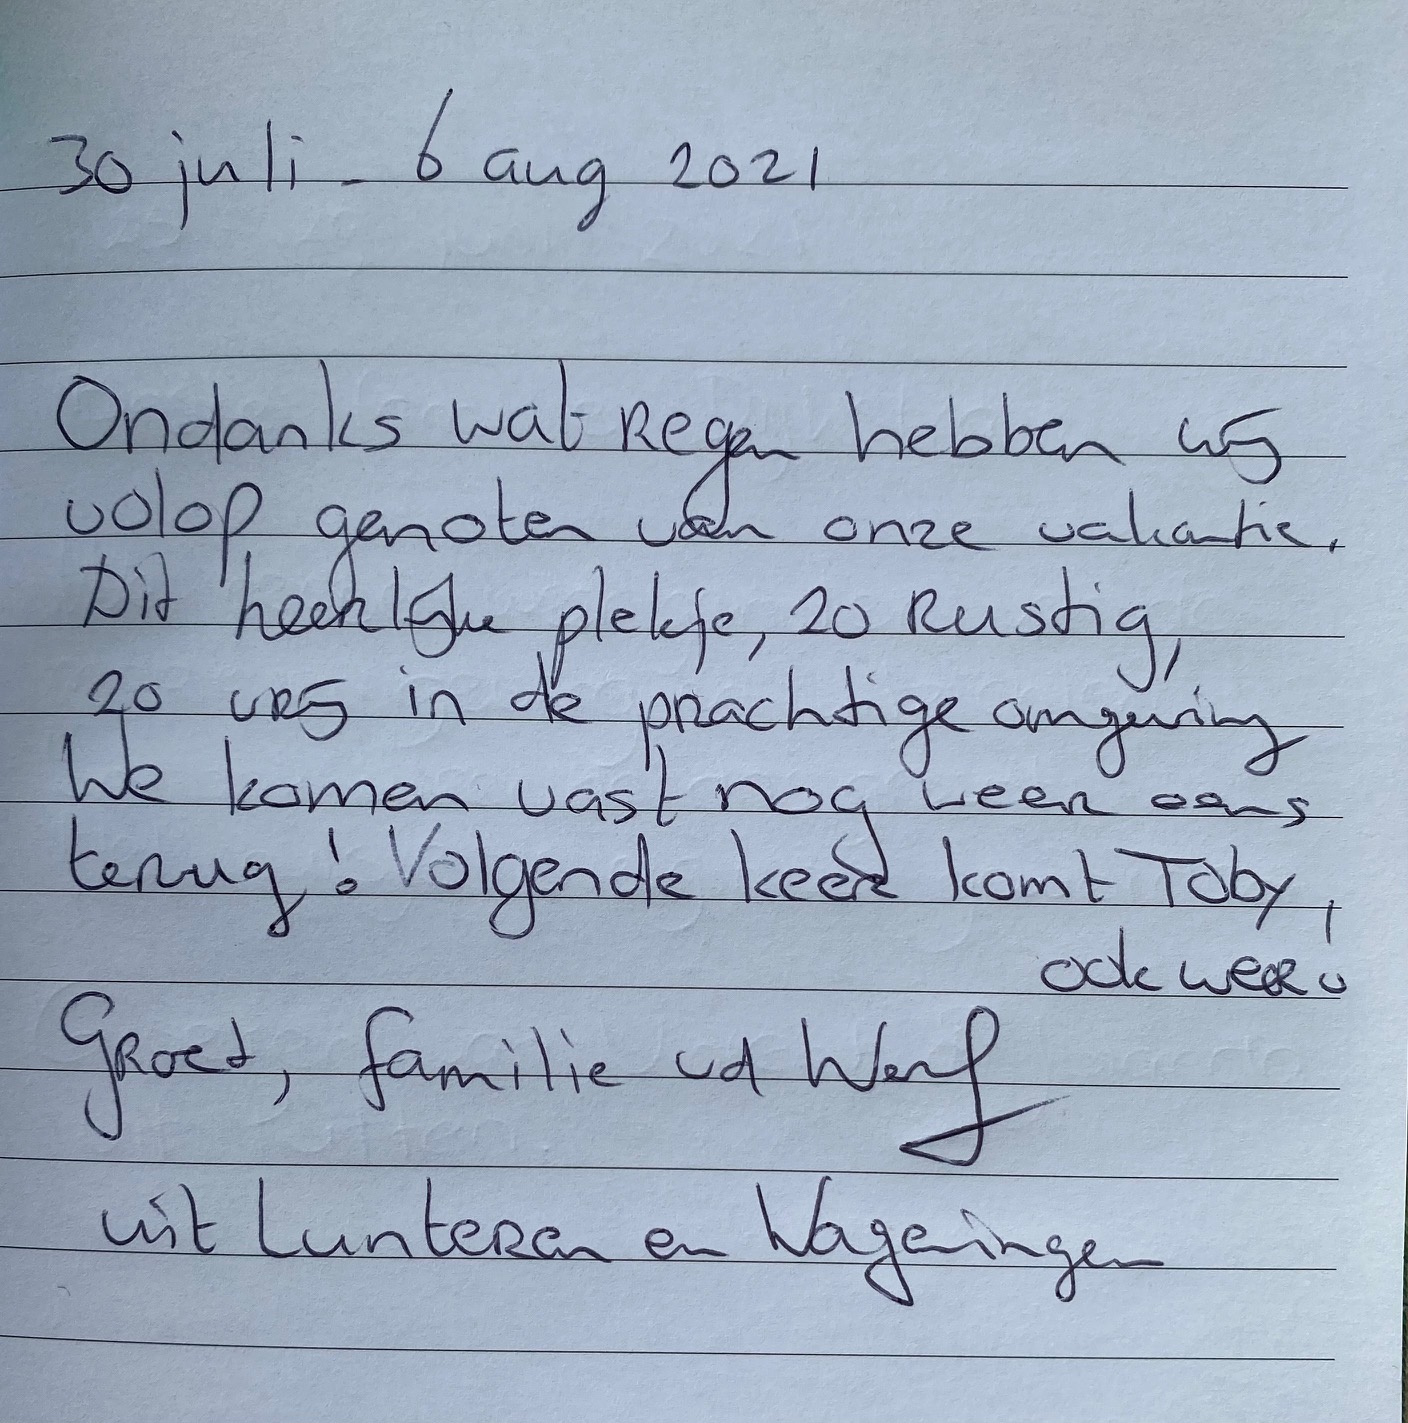 30 juli - 6 aug 2021
Ondanks wat regen hebben wij
volop genoten van onze vakantie.
Dit heerlijke plekje, zo rustig,
zo vrij in de prachtige omgeving
We komen vast nog weer eens
terug! Volgende keer komt Toby,
ook weer
Groet, familie vd Werf
uit Lunteren en Wageningen